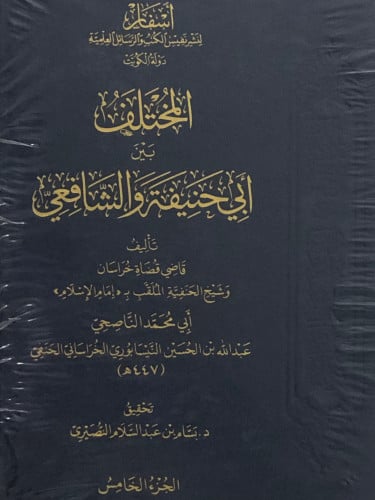 أسفار
لنشر نفيس الكتب والرسائل العلمية
دولة الكويت
المختلف
بين
أبي حنيفة والشافعي
تأليف
قاضي قضاة خراسان
وشيخ الحنفية الملقب بـ «إمام الإسلام»
أبي محمد الناصحي
عبدالله بن الحسين النيسابوري الخراساني الحنفي
(٤٤٧هـ)
تحقيق
د. بسام بن عبدالسلام النصيري
الجزء الخامس